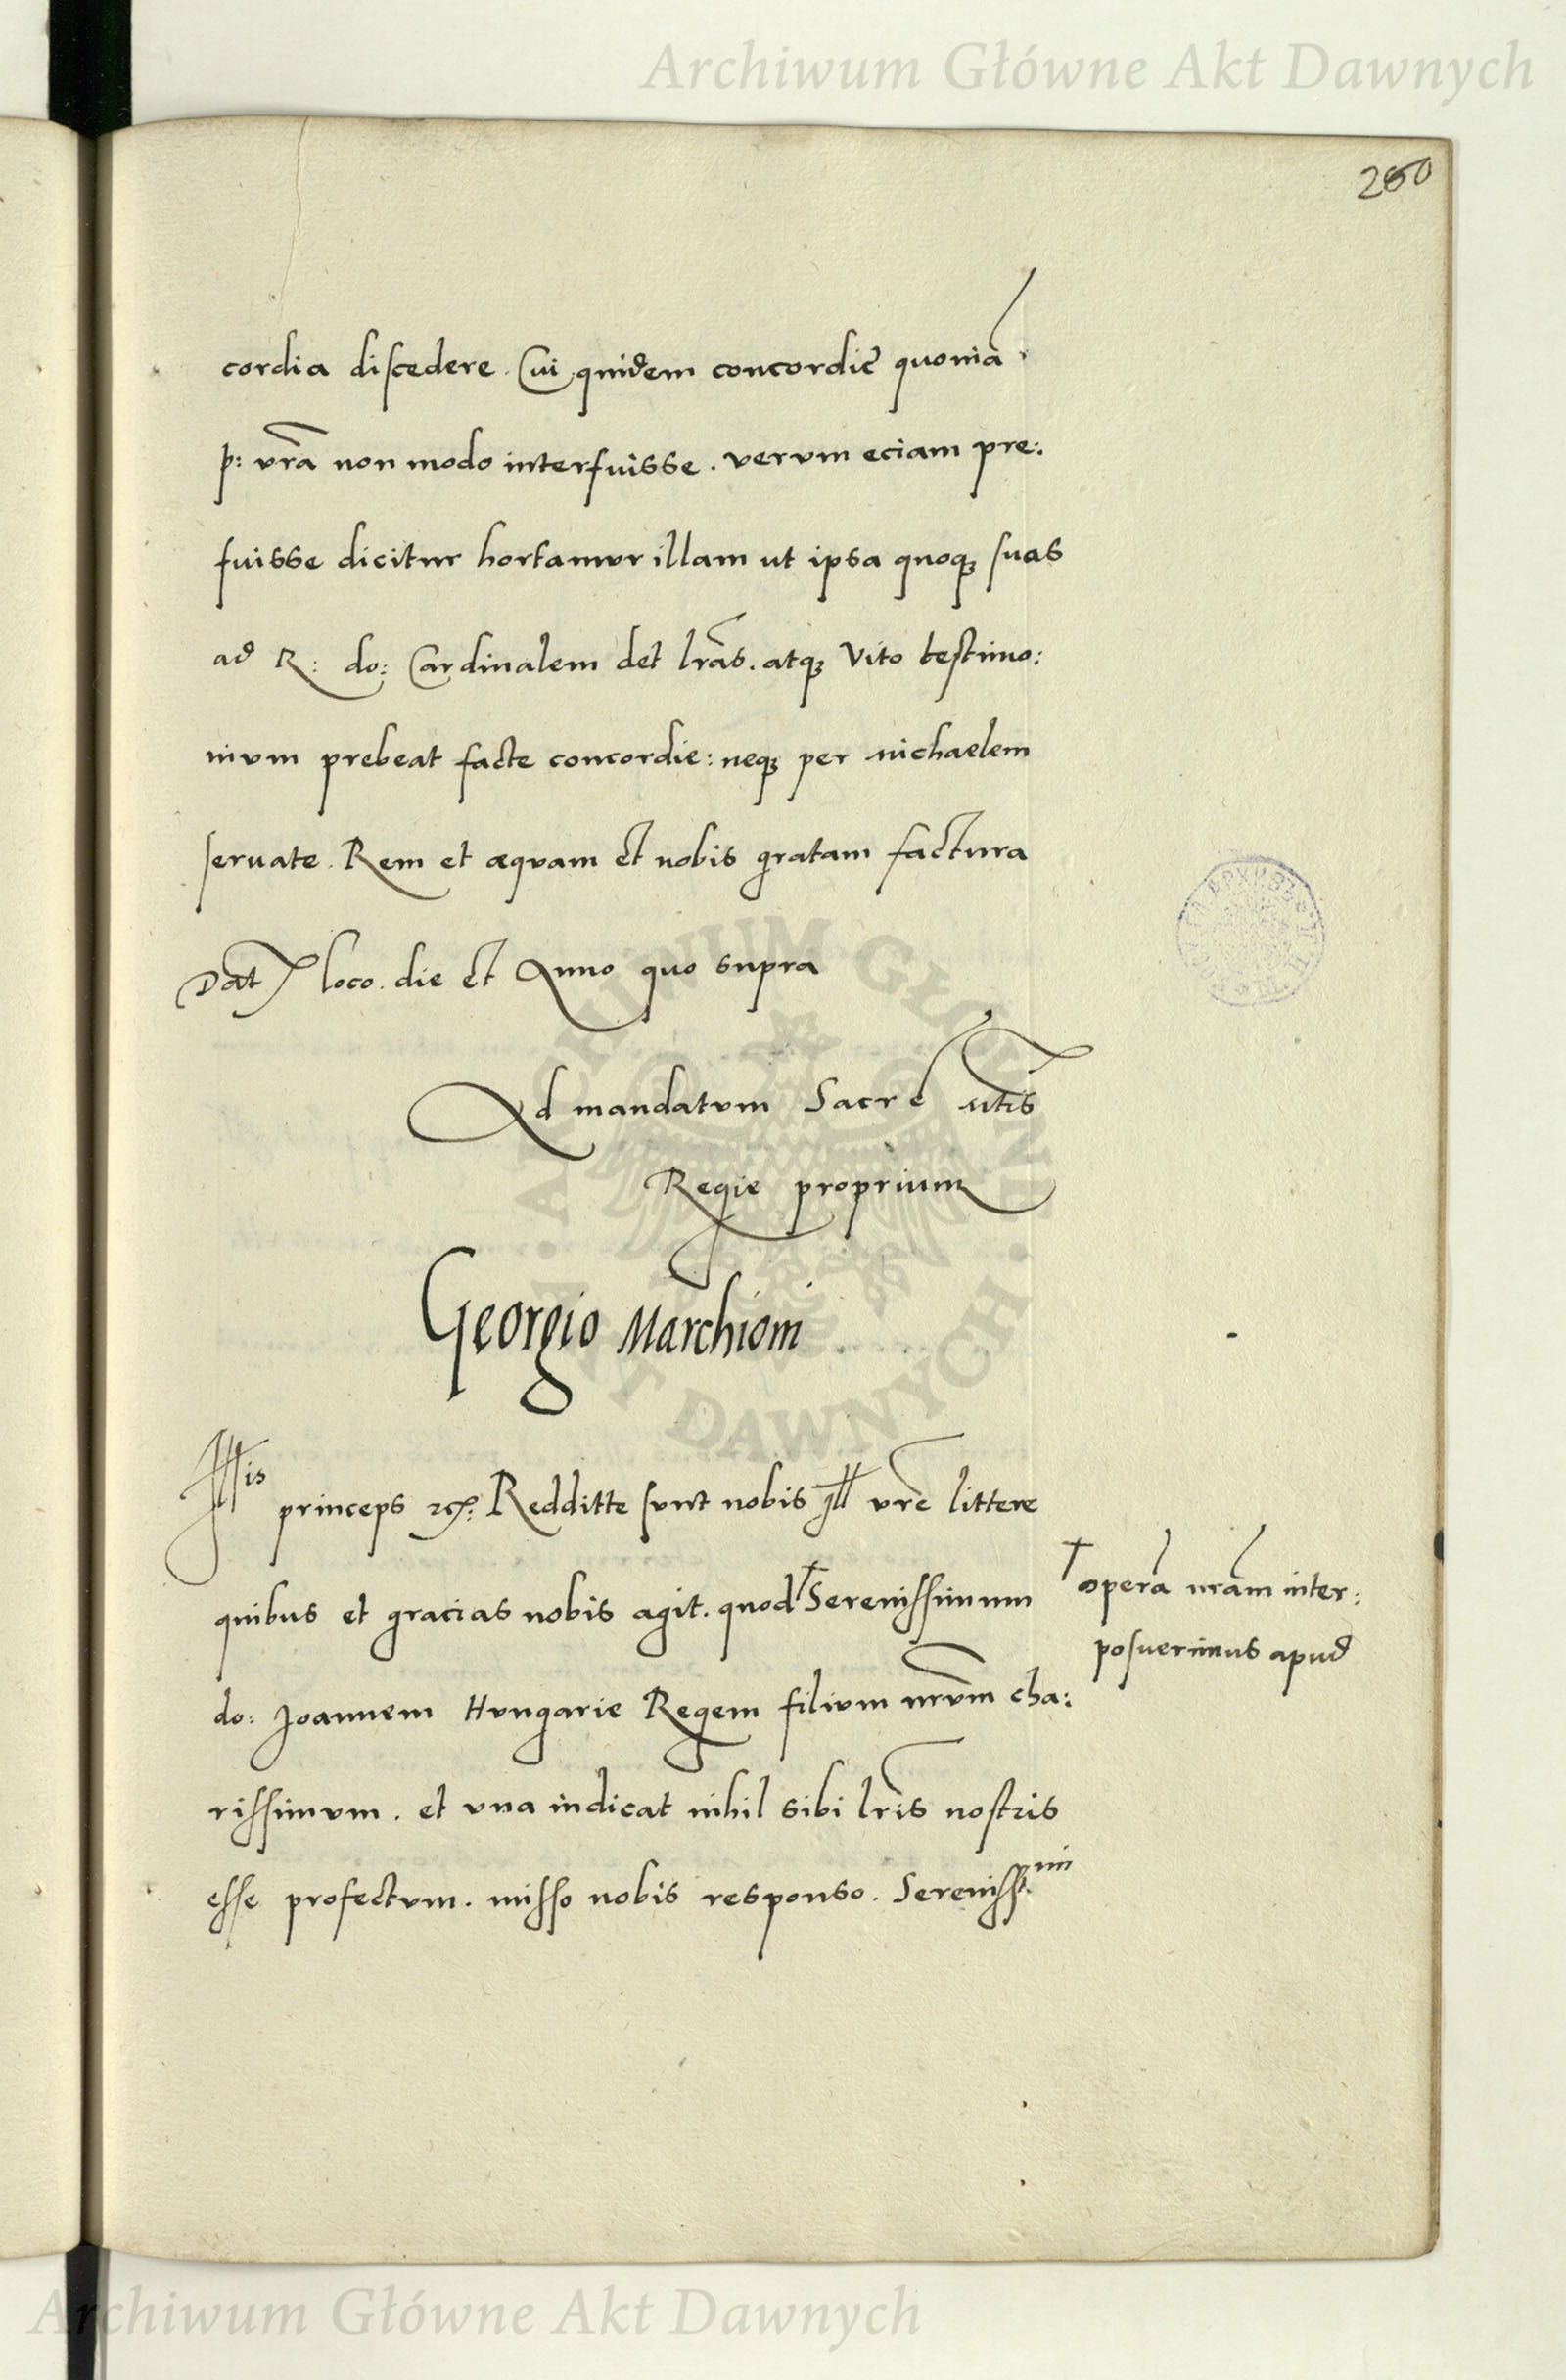 Archiwum Główne Akt Dawnych
260
cordia discedere. Cui quidem concordie quoniā
p: vrā non modo interfuisse. verum eciam pre:
fuisse dicitur hortamur illam ut ipsa quoqꝫ suas
ad R: do: Cardinalem det lrās. atqꝫ Vito testimo:
nium prebeat facte concordie: neqꝫ per michaelem
seruate. Rem et æquam et nobis gratam factura
Dat loco. die et Anno quo supra
Ad mandatum Sacre Mtis
Regie proprium
Georgio Marchioni
Illis princeps ꝛcꝭ: Redditte sunt nobis Ill vrē littere
quibus et gracias nobis agit. quod † Serenissimum
† operā nrām inter:
posuerimus apud
do: Joannem Hungarie Regem filium nrūm cha:
rissimum. et una indicat nihil sibi lrīs nostris
esse profectum. misso nobis responso. Sereniss. mi
ARCHIWUM GŁÓWNE AKT DAWNYCH
Archiwum Główne Akt Dawnych